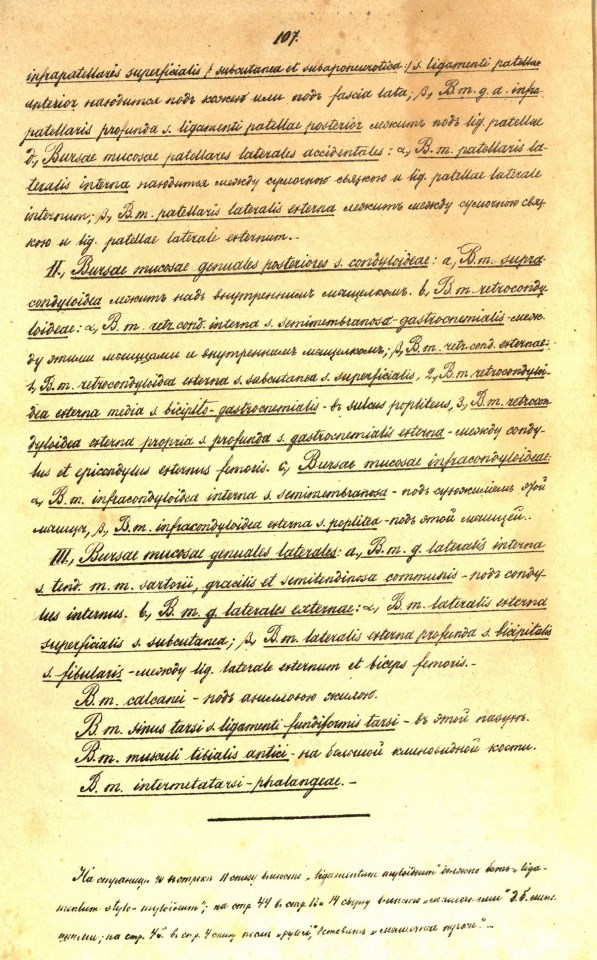 107.
infrapatellaris superficialis /: subcutanea et subaponeurotica :/ s. ligamenti patellae
anterior находится подъ кожею или подъ fascia lata; β, B. m. g. d. infra-
patellaris profunda s. ligamenti patellae posterior лежитъ подъ lig. patellae
d, Bursae mucosae patellares laterales accidentales: α, B. m. patellaris la-
teralis interna находится между сумочною связкою и lig. patellae laterale
internum; β, B. m. patellaris lateralis externa лежитъ между сумочною свяs-
кою и lig. patellae laterale externum. –
II., Bursae mucosae genuales posteriores s. condyloideae: a, B. m. supra-
condyloidea лежитъ надъ внутреннимъ мыщелкомъ. b, B. m. retrocondy-
loideae: α, B. m. retr. cond. interna s. semimembranosa-gastrocnemialis - меж-
ду этими мышцами и внутреннимъ мыщелкомъ; β, B. m. retr. cond. externae:
1, B. m. retrocondyloidea externa s. subcutanea s. superficialis, 2, B. m. retrocondyloi-
dea externa media s. bicipito-gastrocnemialis - въ sulcus popliteus, 3, B. m. retrocon-
dyloidea externa propria s. profunda s. gastrocnemialis externa - между condy-
lus et epicondylus externus femoris. c, Bursae mucosae infracondyloideae:
α, B. m. infracondyloidea interna s. semimembranosa - подъ сухожиліемъ этой
мышцы, β, B. m. infracondyloidea externa s. poplitea - подъ этой мышцей. –
III., Bursae mucosae genuales laterales: a, B. m. g. lateralis interna
s. tend. m. m. sartorii, gracilis et semitendinosa communis - подъ condy-
lus internus. b, B. m. g. laterales externae: α, B. m. lateralis externa
superficialis s. subcutanea; β, B. m. lateralis externa profunda s. bicipitalis
s. fibularis - между lig. laterale externum et biceps femoris. –
B. m. calcanei - подъ ахилловою жилою.
B. m. sinus tarsi s. ligamenti fundiformis tarsi - въ этой пазухѣ.
B. m. musculi tibialis antici - на большой клиновидной кости.
B. m. intermetatarsi-phalangeae. –
На страницѣ 40 въ строкѣ 11 снизу вмѣсто „ligamentum myloideum" должно быть „liga-
mentum stylo-myloideum"; на стр. 44 въ стр. 12 и 14 сверху вмѣсто
; на стр. 45 въ стр. 4 снизу послѣ вставить „мышечные пучки". –